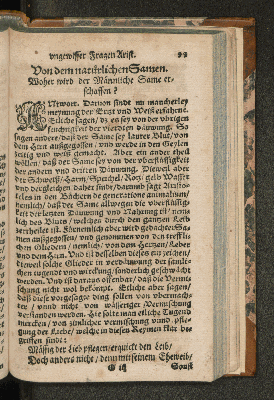 vngewisser Fragen Arist. 99
Von dem natürlichen Samen.
Woher wird der Männliche Same er-
schaffen?
ANtwort. Daruon sindt nu mancherley
meynung der Ertzt vnd Weißerfahrne.
Etliche sagen/ daß es sey von der vbrigen
feuchtigkeit der vierdten däuwung. Sa-
gen andere/ daß der Same sey lauter Blut/ von
dem Hirn außgegossen/ vnd werde in den Geylen
zeitig vnd weiß gemacht. Aber ein ander theil
wöllen/ daß der Same sey von der vberflüssigkeit
der andern vnd dritten Däuwung. Dieweil aber
der Schweiß/ Harn/ Speichel/ Rotz gelb Wasser
vnd dergleichen daher sindt/ darumb sagt Aristo-
teles in den Büchern de generatione animalium/
nemlich/ daß der Same allwegen die vberflüssig-
keit der letzten Däuwung vnd Nahrung ist/ nem-
lich des Bluts/ welches durch den gantzen Leib
zertheilet ist. Fürnemlich aber wird gedachter Sa-
men außgegossen/ vnd genommen von den treffli-
chen Gliedern/ nemlich/ von dem Hertzen/ Leber
vnd dem Hirn. Vnd ist desselben dieses ein zeichen/
dieweil solche Glieder in verdäuwung des männli-
chen tugendt vnd wirckung/ sonderlich geschwächt
werden. Vnd ist daraus offenbar/ daß die Vermi-
schung nicht wol bekompt. Etliche aber sagen/
daß diese vorgesagte ding sollen von vbermach-
ter/ vnd nicht von mässiger Vermischung
verstanden werden. Hie solte man etliche Tugend
mercken/ von zimlicher vermischung vnd pfle-
gung der Liebe/ welche in diesen Reymen klar be-
griffen sindt:
Mässig der Lieb pflegen/ erquickt den Leib/
Doch anders nicht/ denn mit seinem Eheweib/
Sonst